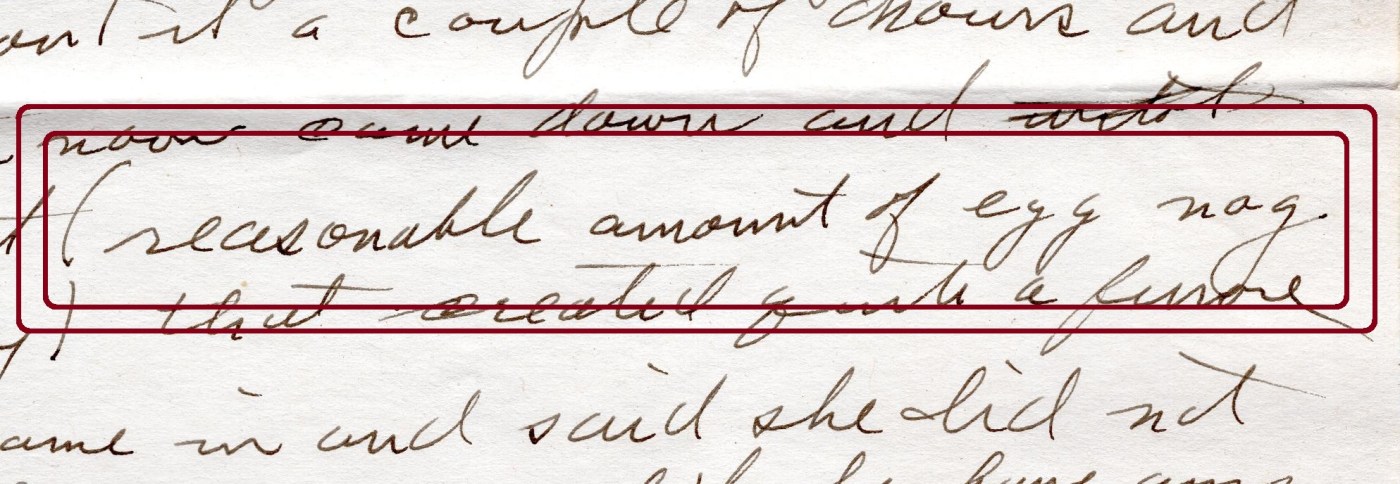 a couple of hours and
noon came down and
(reasonable amount of egg nog.
) that created quite a furore
ame in and said she did not